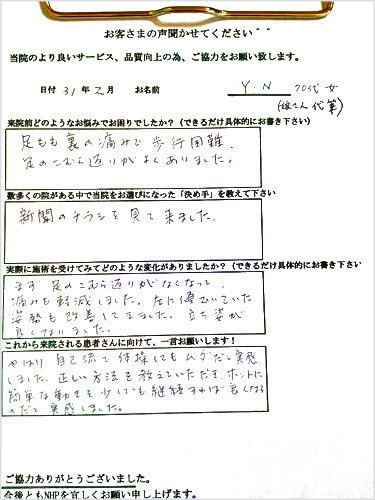 お客さまの声聞かせてください＾＾
当院のより良いサービス、品質向上の為、ご協力をお願い致します。
日付 31年2月 お名前 Y・N 70代 女
(娘さん代筆)
来院前どのようなお悩みでお困りでしたか？（できるだけ具体的にお書き下さい）
足もも裏の痛みで歩行困難.
足のこむら返りがよくありました.
数多くの院がある中で当院をお選びになった「決め手」を教えて下さい
新聞のチラシを見て来ました.
実際に施術を受けてみてどのような変化がありましたか？（できるだけ具体的にお書き下さい
まず足のこむら返りがなくなって、
痛みも軽減しました. 左に傾むいていた
姿勢も改善してきました. 立ち姿が
良くなりました.
これから来院される患者さんに向けて、一言お願いします！
やはり自己流で体操してもムダだと実感
しました. 正しい方法を教えていただき. ホントに
簡単な動きを少しでも継続すれば良くなる
のだと実感しました.
ご協力ありがとうございました。
今後ともNHPを宜しくお願い申し上げます。